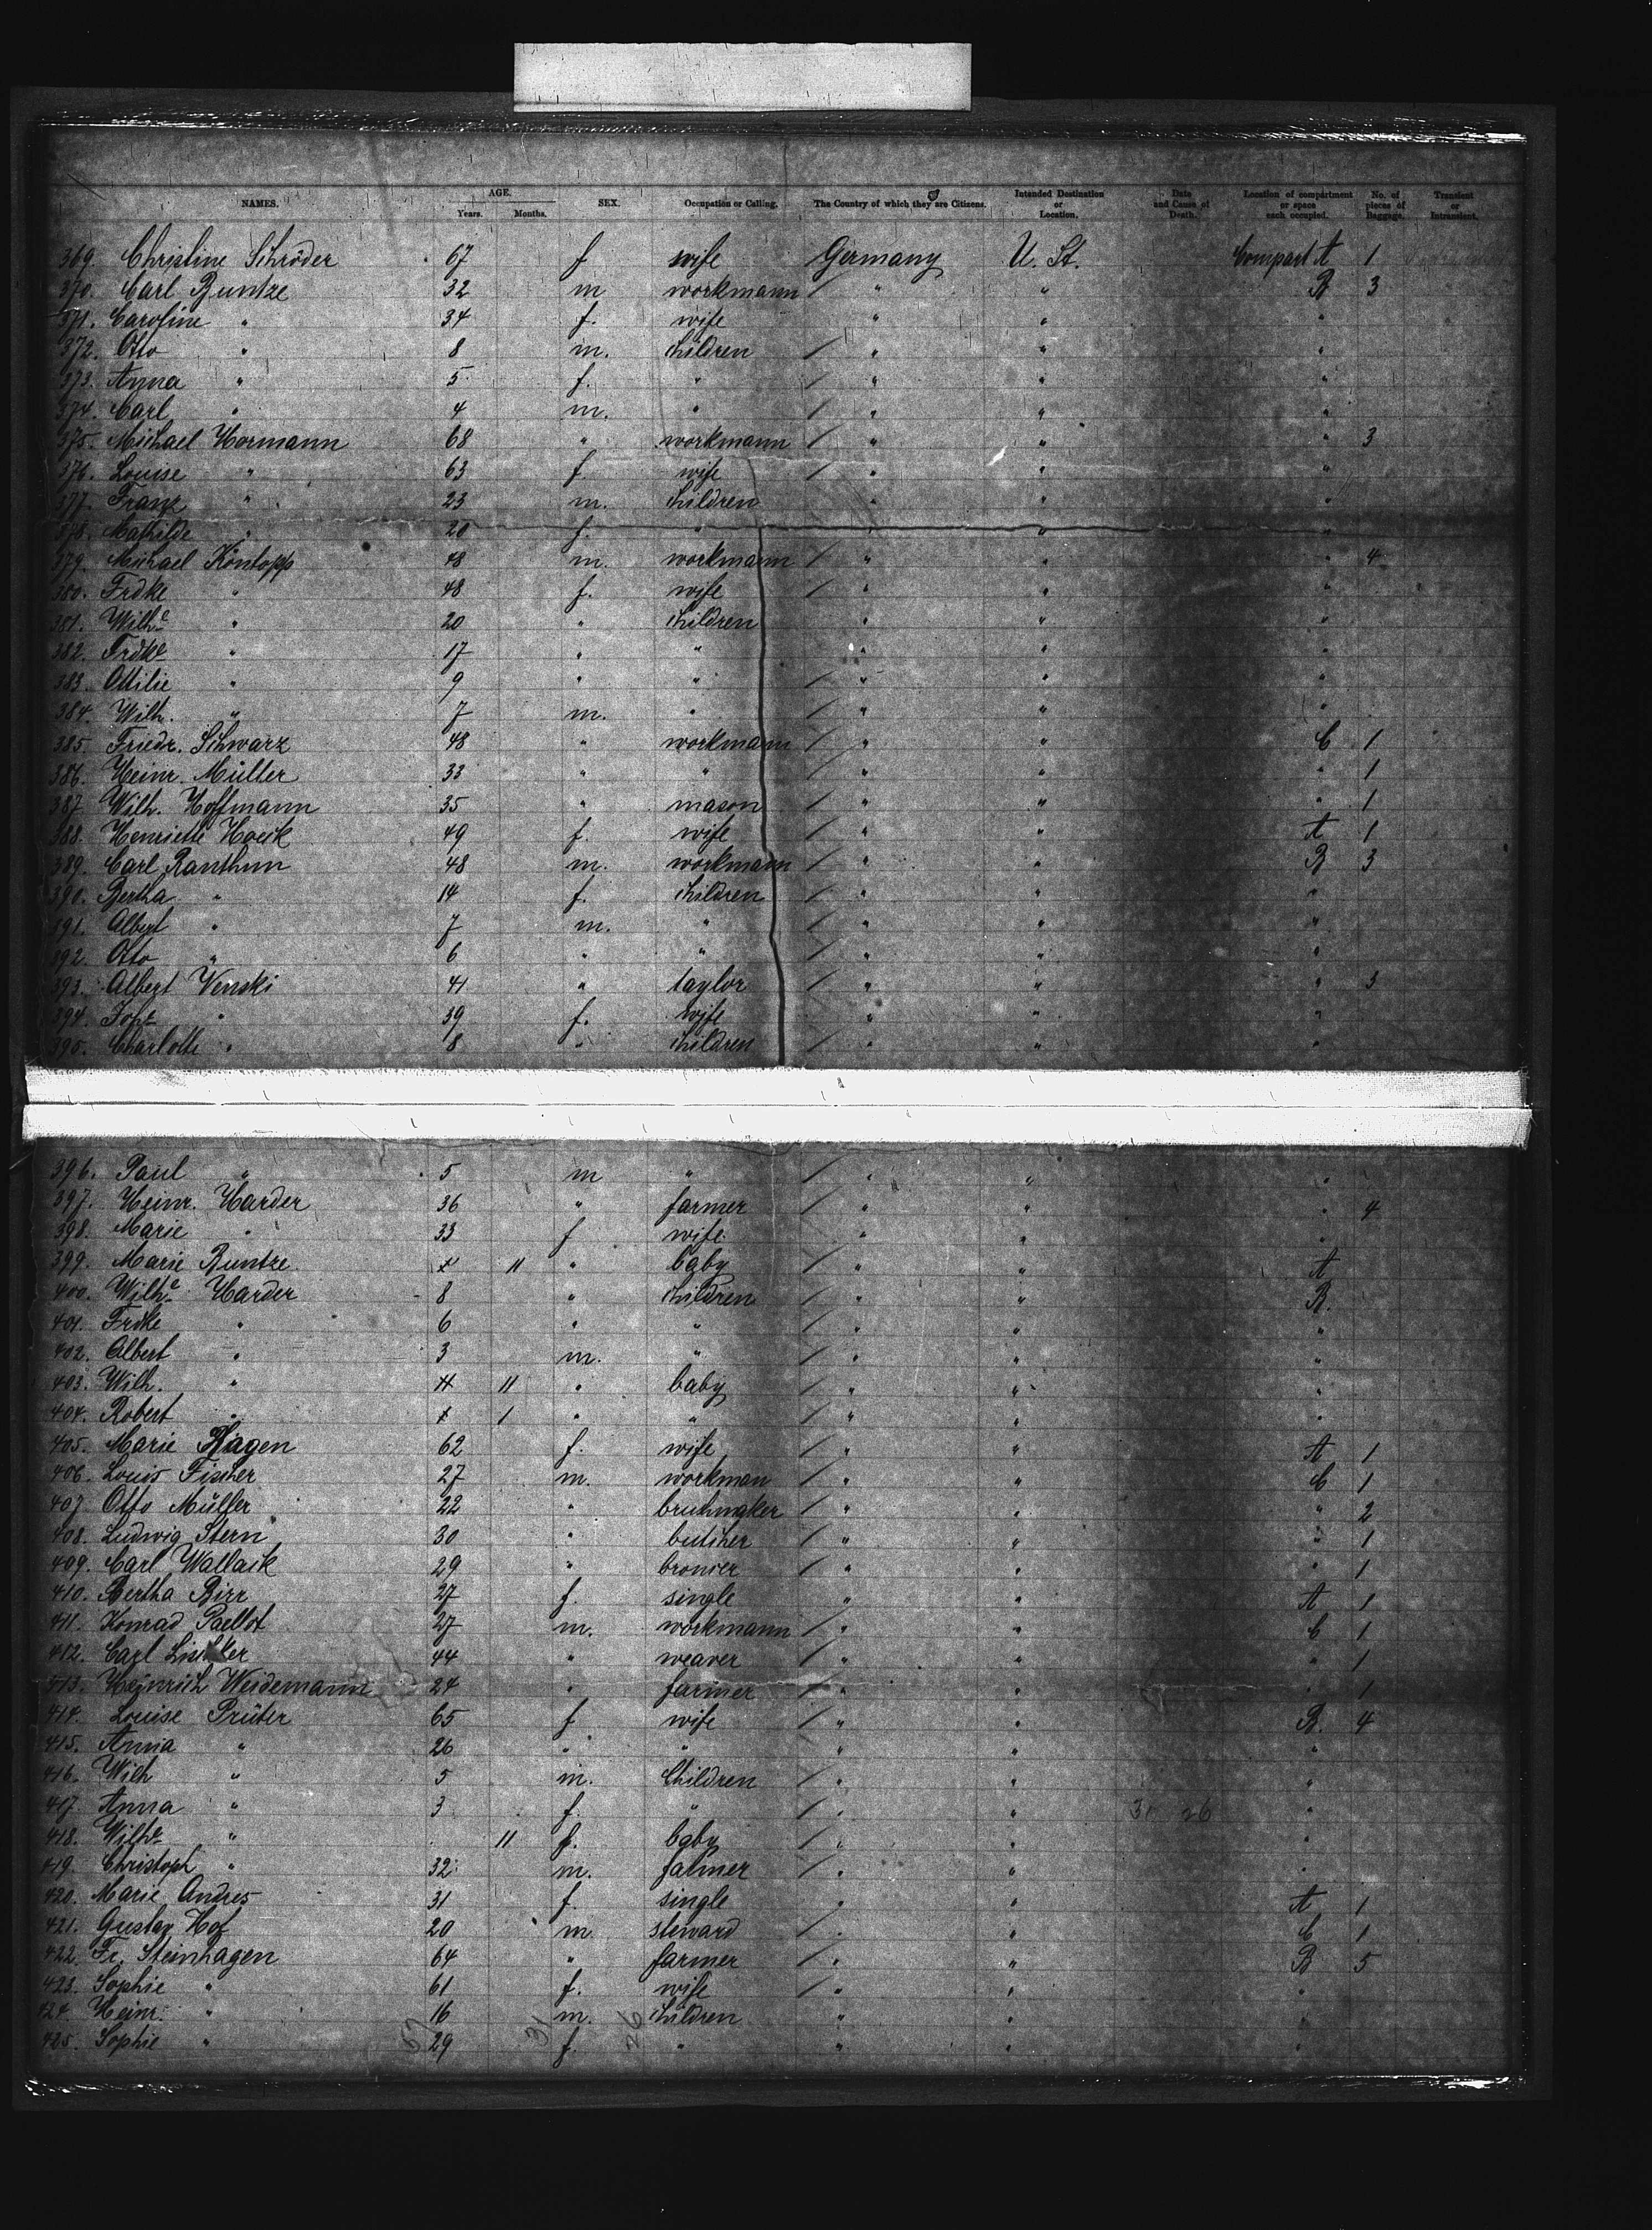 NAMES. AGE. Years. Months. SEX. Occupation or Calling. The Country of which they are Citizens. Intended Destination or Location. Date and Cause of Death. Location of compartment or space each occupied. No. of pieces of Baggage. Transient or Intransient.
369. Christine Schröder 67 f wife Germany U. St. Compart A 1
370. Carl Buntze 32 m workmann / " " B 3
371. Caroline " 34 f. wife " " "
372. Otto " 8 m. children / " " "
373. Anna " 5 f. " / " " "
374. Carl " 4 m. " / " " "
375. Michael Hormann 68 " workmann / " " " 3
376. Louise " 63 f. wife / " " "
377. Franz " 23 m. children " " "
378. Mathilde " 20 f. " " " "
379. Michael Köntopp 48 m. workmann / " " " 4
380. Frdke " 48 f. wife / " " "
381. Wilhe " 20 " children " " "
382. Frdke " 17 " " " " "
383. Ottilie " 9 " " / " " "
384. Wilh. " 7 m. " / " " "
385. Friedr. Schwarz 48 " workmann / " " C 1
386. Heinr. Müller 33 " " / " " " 1
387. Wilh. Hoffmann 35 " mason / " " " 1
388. Henriette Hoeck 49 f. wife / " " A 1
389. Carl Ranthun 48 m. workmann / " " B 3
390. Bertha " 14 f. children / " " "
391. Albert " 7 m. " / " " "
392. Otto " 6 " " / " " "
393. Albert Venski 41 " taylor / " " " 3
394. " 39 f. wife " " "
395. Charlotte " 8 " children / " " "
396. Paul " 5 m " / " " "
397. Heinr. Harder 36 " farmer / " " " 4
398. Marie " 33 f wife " " "
399. Marie Buntze 11 " baby / " " A
400. Wilhe Harder 8 " children / " " B.
401. Frdke " 6 " " / " " "
402. Albert " 3 m. " / " " "
403. Wilh. " 11 " baby / " " "
404. Robert " 1 " " / " " "
405. Marie Hagen 62 f. wife / " " A 1
406. Louis Fischer 27 m. workman / " " C 1
407. Otto Müller 22 " bruhmaker / " " " 2
408. Ludwig Stern 30 " butcher / " " " 1
409. Carl Wallack 29 " brower / " " " 1
410. Bertha Birr 27 f. single " " A 1
411. Konrad Paelldt 27 m. workmann / " " C 1
412. Carl 44 " weaver / " " " 1
413. Heinrich Weidemann 24 " farmer / " " " 1
414. Louise Prüter 65 f wife / " " B. 4
415. Anna " 26 " " " " "
416. Wilh " 5 m. Children / " " "
417. Anna " 3 f. " / " " 31 26 "
418. Wilhe " 11 f. baby / " " "
419. Christoph " 32 m. farmer / " " "
420. Marie Andres 31 f. single " " A 1
421. Gustav Hof 20 m. steward / " " C 1
422. Fr. Steinhagen 64 " farmer / " " B 5
423. Sophie " 61 f. wife / " " "
424. Heinr. " 16 m. children " " "
425. Sophie " 29 f. " " " "
57 31 26